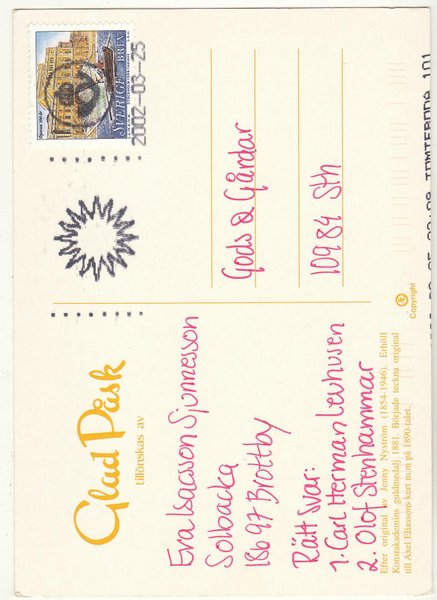 Glad Påsk
tillönskas av
Eva Isacsson Sjunnesson
Solbacka
186 97 Brottby
Rätt svar:
1. Carl Herman Levhusen
2. Olof Stenhammar
Efter original av Jenny Nyström (1854-1946). Erhöll
Konstakademins guldmedalj 1881. Började teckna original
till Axel Eliassons kort m.m på 1890-talet.
SVERIGE BREV
2002-03-25
Gods & Gårdar
109 84 Sth
Æ
Copyright
TOMTEBODA 101